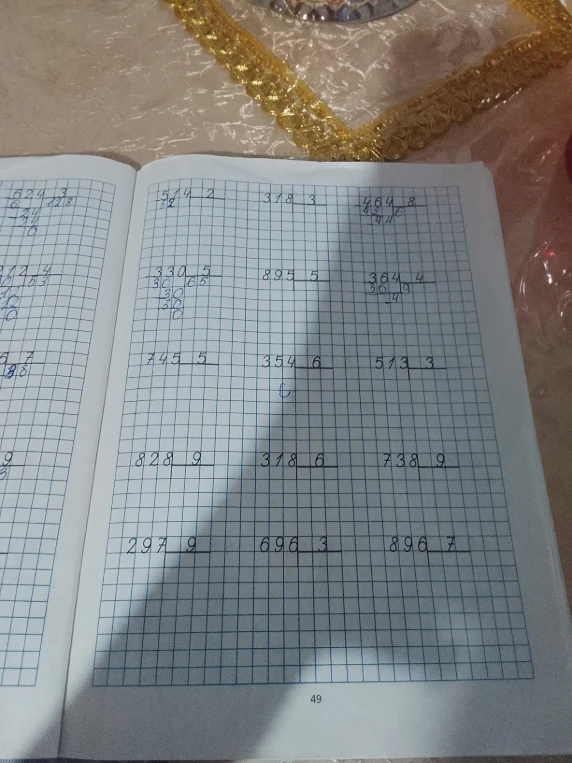 624 3
6 128
24
24
0
514 2
12
318 3
464 8
6
44
912 4
53
12
0
330 5
30 65
30
30
0
895 5
364 4
36 9
4
7
38
745 5
354 6
513 3
9
828 9
318 6
738 9
297 9
696 3
896 7
49